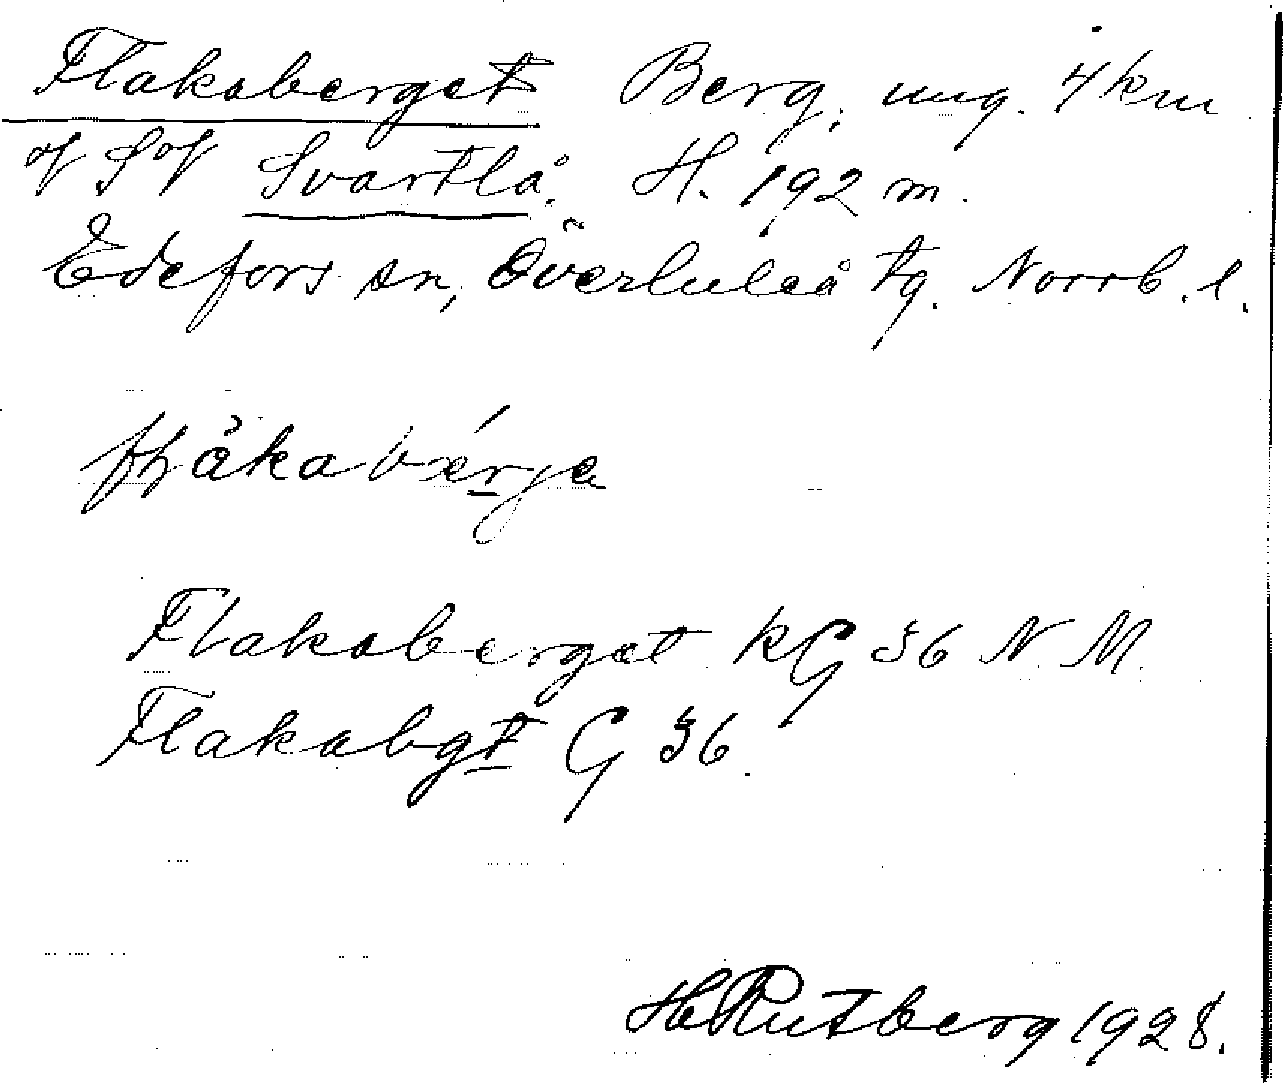 Flakaberget Berg, ung. 4 km
V S V Svartlå. H. 192 m.
Edefors sn, Överluleå tg. Norrb. l.
Flakaberget KG 36 N. M.
Flakabgt G 36.
HRutberg 1928.